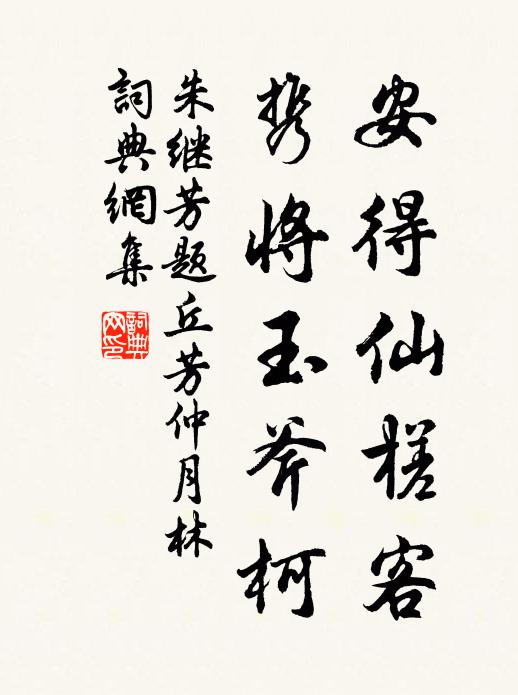 安得仙槎客
携將玉斧柯
朱继芳题丘芳仲月林
詞典網集
詞典网印